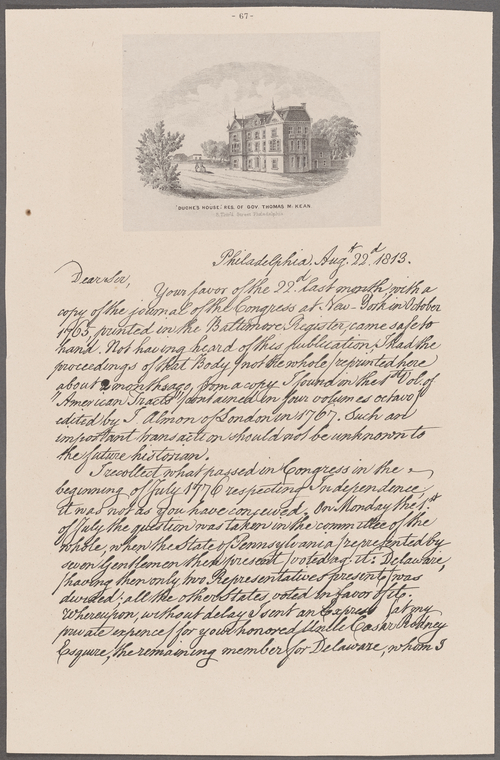 - 67 -
"DUCHE'S HOUSE", RES. OF GOV. THOMAS M. KEAN.
S. Third Street Philadelphia
Philadelphia, Aug.t 22.d 1813.
Dear Sir,
Your favor of the 22.d last month with a
copy of the journal of the Congress at New-York in October
1765, printed in the Baltimore Register, came safe to
hand. Not having heard of this publication, I had the
proceedings of that Body (not the whole) reprinted here
about 2 months ago, from a copy I found in the 1st Vol. of
"American Tracts" contained in four volumes octavo
edited by J. Almon of London in 1767. Such an
important transaction should not be unknown to
the future historian.
I recollect what passed in Congress in the
beginning of July 1776 respecting Independence
it was not as you have conceived. On Monday the 1.st
of July the question was taken in the committee of the
whole, when the State of Pennsylvania (represented by
seven Gentlemen then present) voted ag.t it: Delaware,
(having then only two Representatives present) was
divided: all the other States voted in favor of it.
Whereupon, without delay I sent an Express (at my
private expence) for your honored Uncle Cæsar Rodney
Esquire, the remaining member for Delaware, whom I